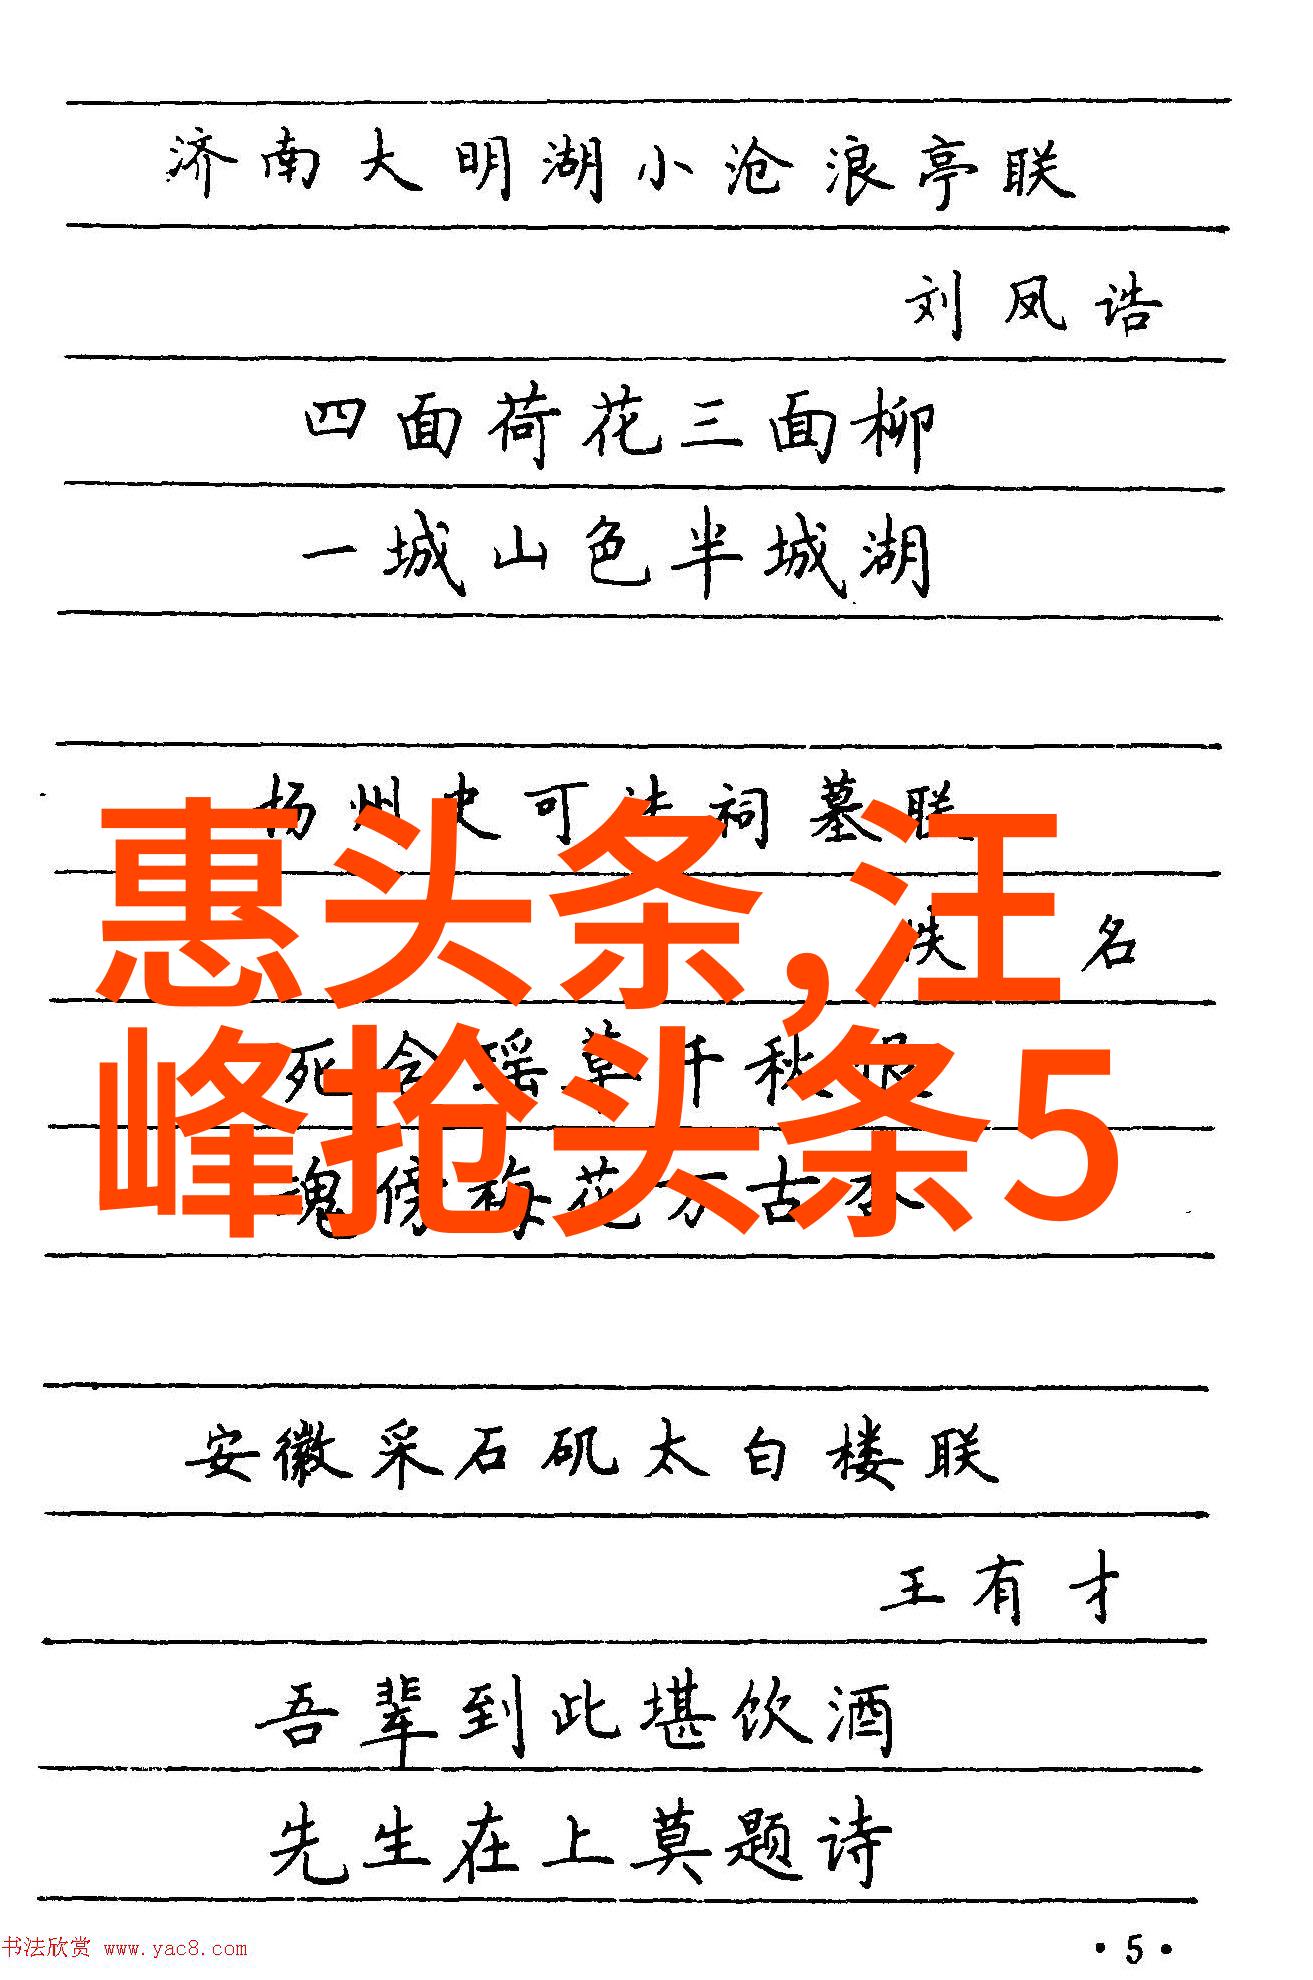 济南大明湖小沧浪亭联
刘凤诰
四面荷花三面柳
一城山色半城湖
扬州史可法祠墓联
佚名
惠头条,汪
峰抢头条5
死 瑶草千秋
魂傍梅花万古
安徽采石矶太白楼联
王有才
吾辈到此堪饮酒
先生在上莫题诗
书法欣赏 www.yac8.com
·5·